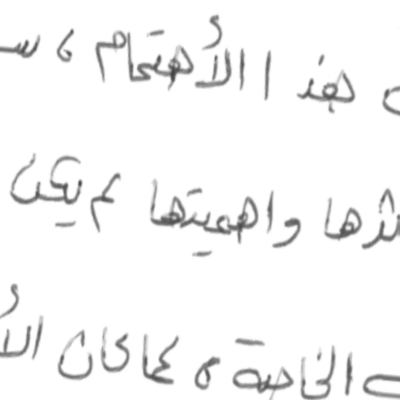 هذا الأهتمام ، س
ثرها واهميتها لم يكن
الخاصة ، كما كان الأ